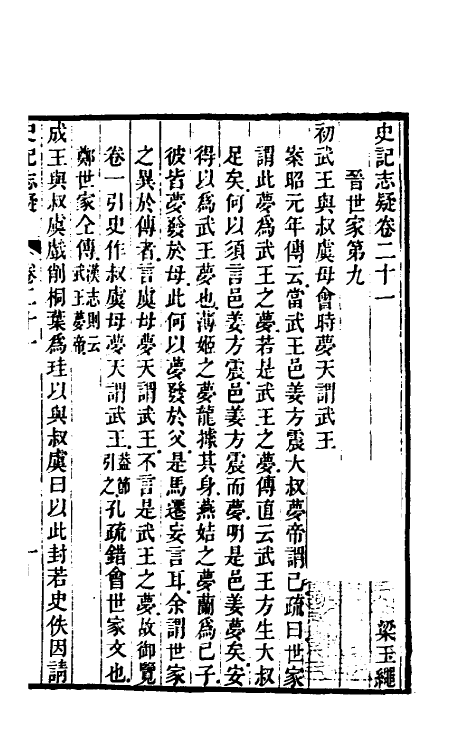 史記志疑卷二十一
梁玉繩
晉世家第九
初武王與叔虞母會時夢天謂武王
案昭元年傳云當武王邑姜方震大叔夢帝謂己疏曰世家
謂此夢為武王之夢若是武王之夢傳直云武王方生大叔
足矣何以須言邑姜方震邑姜方震而夢明是邑姜夢矣安
得以為武王夢也薄姬之夢龍據其身燕姞之夢蘭為己子
彼皆夢發於母此何以夢發於父是馬遷妄言耳余謂世家
之異於傳者言虞母夢天謂武王不言是武王之夢故御覽
卷一引史作叔虞母夢天謂武王益節引之孔疏錯會世家文也
鄭世家仝傳漢志則云武王夢帝
成王與叔虞戲削桐葉為珪以與叔虞曰以此封若史佚因請
史記志疑 卷二十一 一